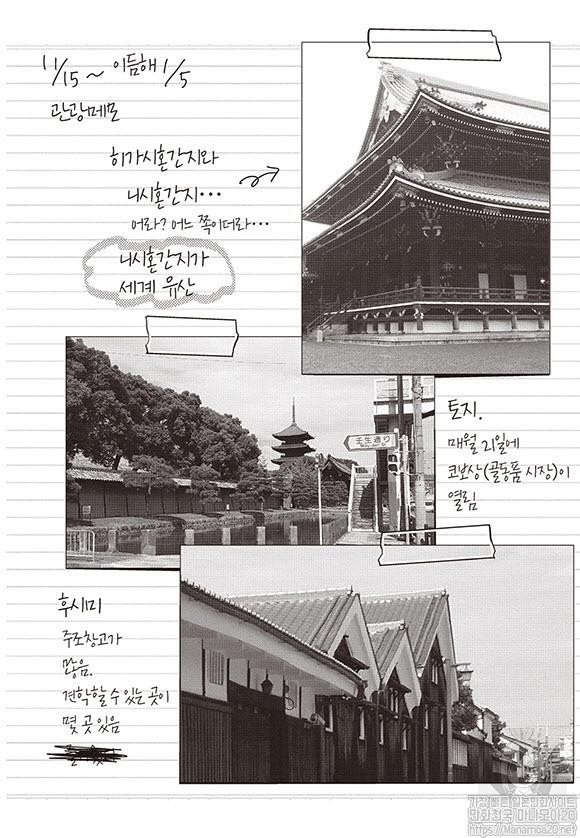 11/15 ~ 이듬해 1/5
관광메모
히가시혼간지와
니시혼간지...
어라? 어느 쪽이더라...
니시혼간지가
세계 유산
壬生通り
토지.
매월 21일에
코보상(골동품 시장)이
열림
후시미
주조창고가
많음.
견학할 수 있는 곳이
몇 곳 있음
가장빠른일본만화사이트
만화천국 마나모아20
https://Manamoa20.net